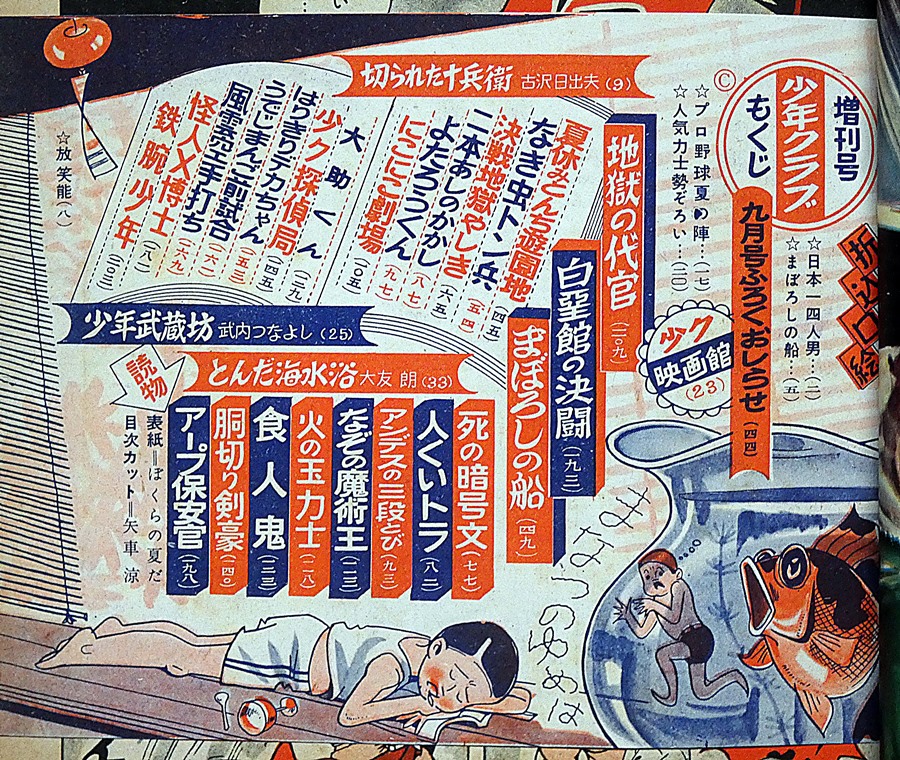 増刊号
少年クラブ
もくじ
©
折込口絵
☆日本一四人男…(一)
☆まぼろしの船…(五)
九月号ふろくおしらせ(四四)
☆プロ野球夏の陣…(一七)
☆人気力士勢ぞろい…(二〇)
少ク
映画館
(23)
切られた十兵衛 古沢日出夫(9)
地獄の代官(二〇九)
白堊館の決闘(一九三)
まぼろしの船(四九)
夏休みとんち遊園地
なき虫トン兵
決戦地獄やしき
二本あしのかかし
よたろうくん
にこにこ劇場(一〇五)
大助くん
少ク探偵局
はりきりデカちゃん
うでじまんご前試合
風雲亮空手打ち
怪人X博士
鉄腕少年
☆放笑能(八)
少年武蔵坊 武内つなよし(25)
とんだ海水浴 大友朗(33)
読物
死の暗号文(七七)
人くいトラ(八二)
アンデスの三段とび(九三)
なぞの魔術王
火の玉力士
食人鬼
胴切り剣豪
アープ保安官
表紙=ぼくらの夏だ
目次カット=矢車涼
まなつのゆめは